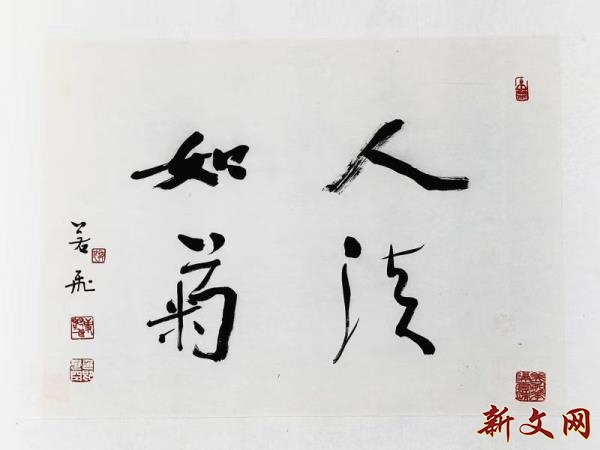 人淡
如菊
若飛
新文网